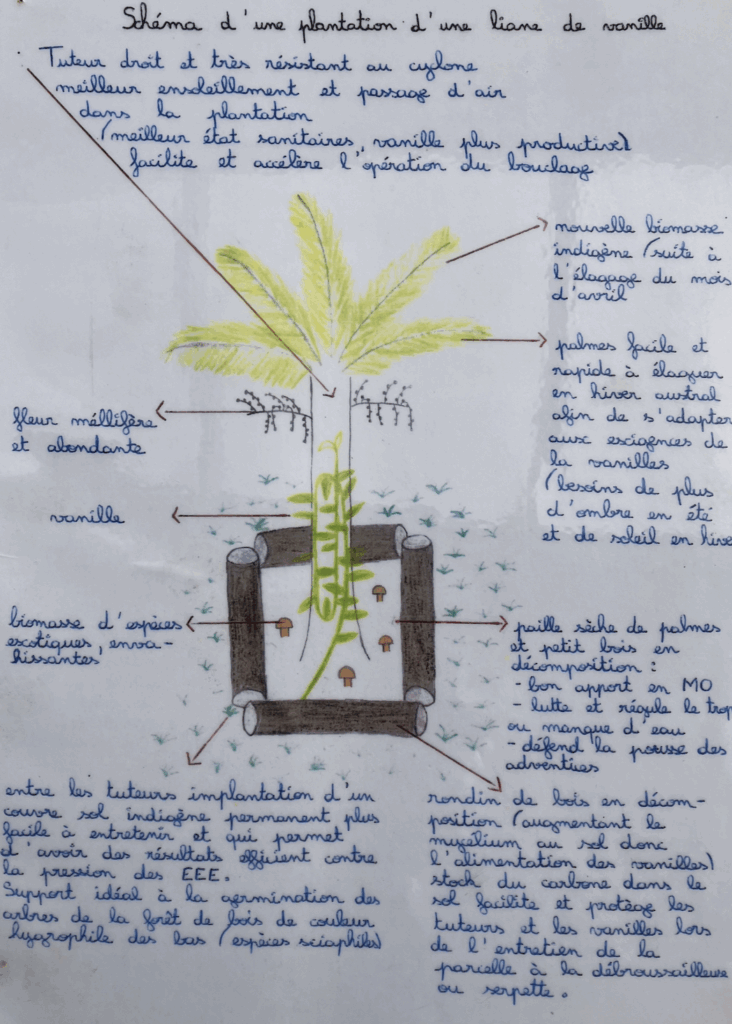 Schéma d'une plantation d'une liane de vanille
Tuteur droit et très résistant au cyclone
meilleur ensoleillement et passage d'air
dans la plantation
(meilleur état sanitaires, vanille plus productive)
facilite et accélère l'opération du bouclage
nouvelle biomasse
indigène (suite à
l'élagage du mois
d'avril
palmes facile et
rapide à élaguer
en hiver austral
afin de s'adapter
aux exigences de
la vanilles
(besoins de plus
d'ombre en été
et de soleil en hive
fleurméllifère
et abondante
vanille
biomasse d'espèces
exotiques, enva-
hissantes
paille sèche de palmes
et petit bois en
décomposition :
- bon apport en MO
- lutte et régule le trop
ou manque d'eau
- défend la pousse des
adventices
entre les tuteurs implantation d'un
couvre sol indigène permanent plus
facile à entretenir et qui permet
d'avoir des résultats efficient contre
la pression des EEE.
Support idéal à la germination des
arbres de la forêt de bois de couleur
hygrophile des bas (espèces sciaphiles)
rondin de bois en décom-
position (augmentant le
mycélium au sol donc
l'alimentation des vanilles)
stock du carbone dans le
sol facilite et protège les
tuteurs et les vanilles lors
de l'entretien de la
parcelle à la débroussailleuse
ou serpette.